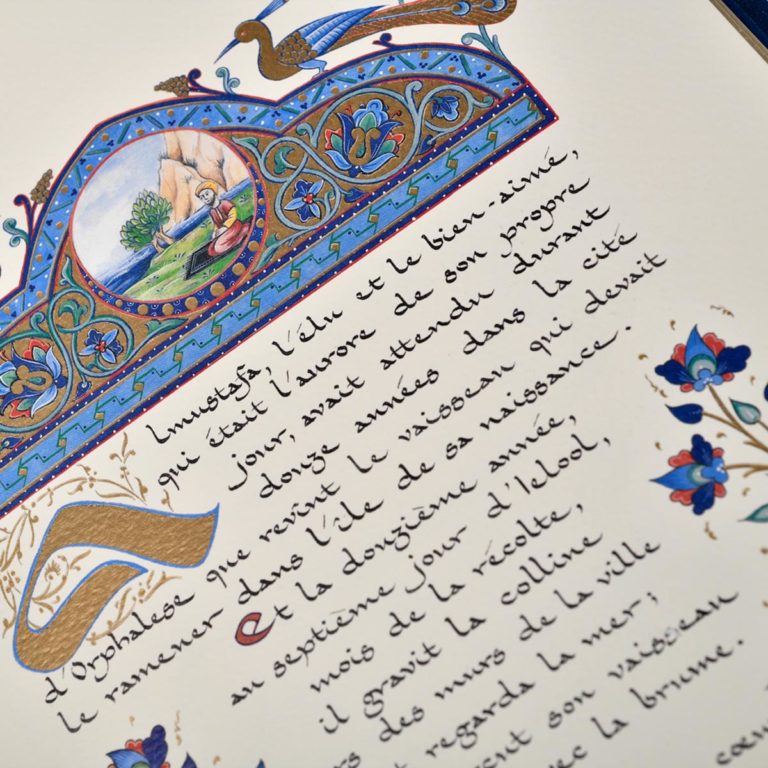 Almustafa, l'élu et le bien-aimé,
qui était l'aurore de son propre
jour, avait attendu durant
douze années dans la cité
d'Orphalese que revint le vaisseau qui devait
le ramener dans l'île de sa naissance.
et la douzième année,
au septième jour d'Ielool,
mois de la récolte,
il gravit la colline
des murs de la ville
regarda la mer;
son vaisseau
la brume.